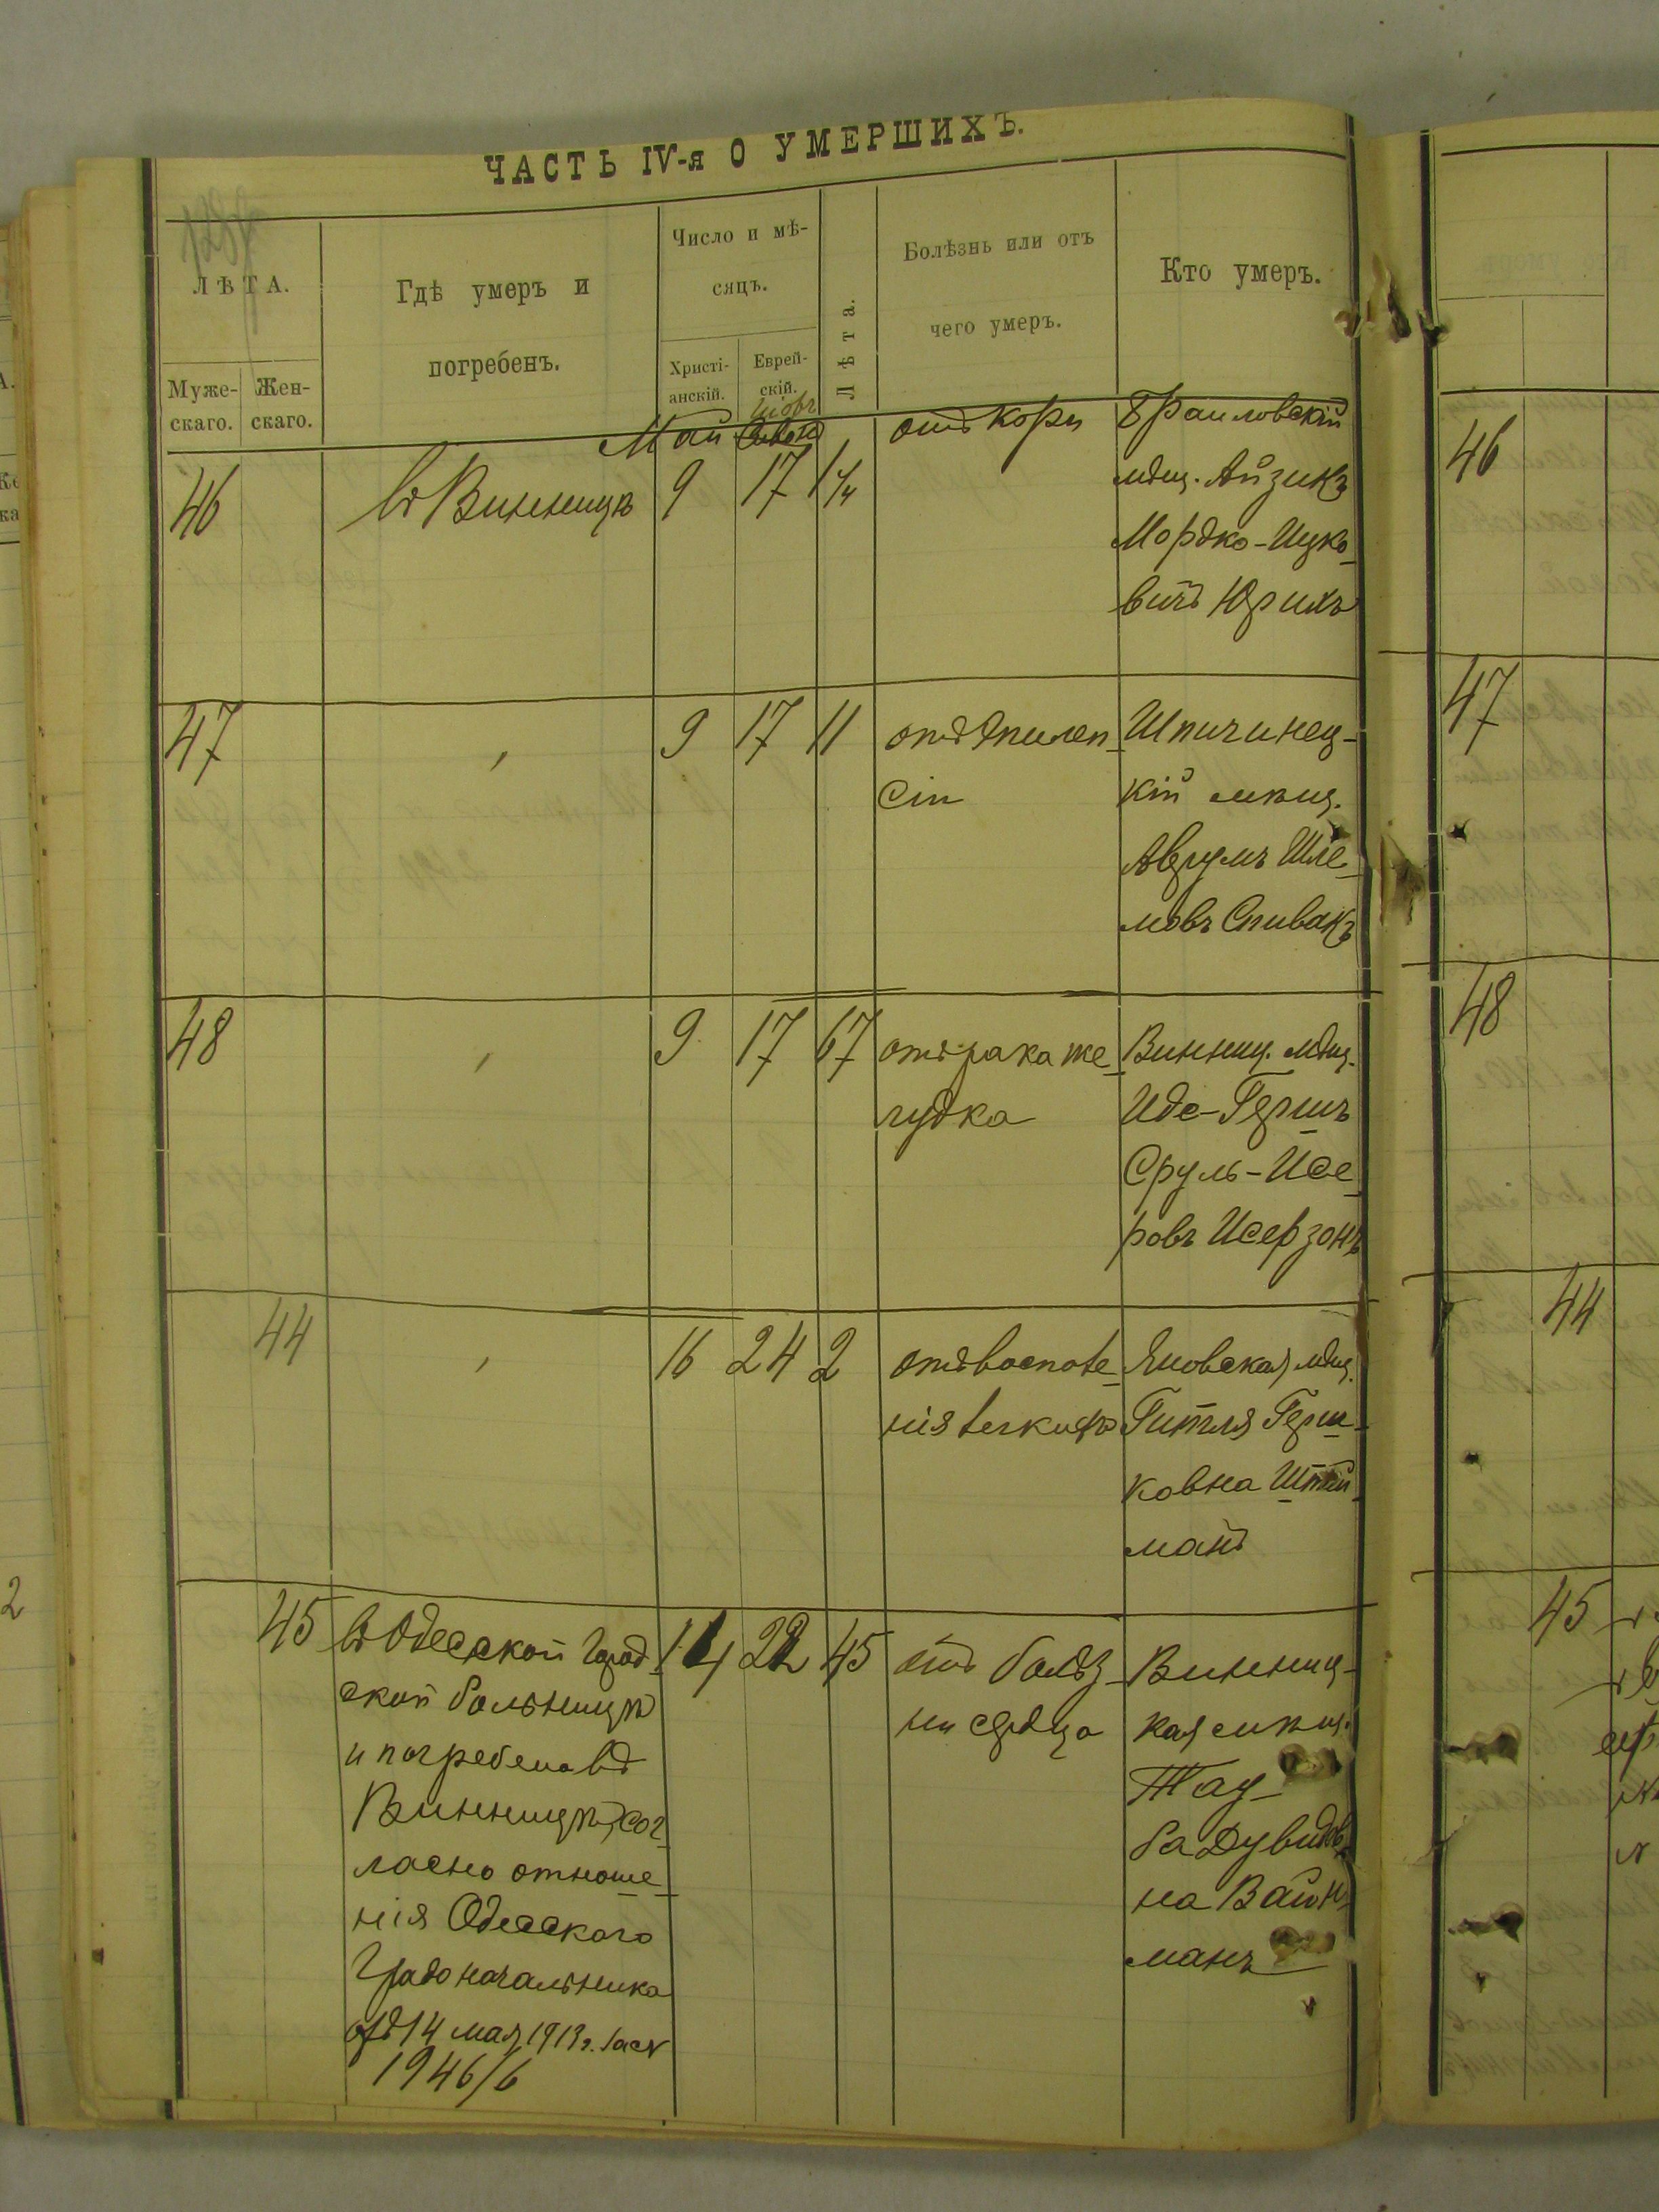 ЧАСТЬ IV-я О УМЕРШИХЪ.
ЛѢТА.
Муже-
скаго.
Жен-
скаго.
Гдѣ умеръ и
погребенъ.
Число и мѣ-
сяцъ.
Христі-
анскій.
Еврей-
скій.
Лѣта.
Болѣзнь или отъ
чего умеръ.
Кто умеръ.
Май
46
въ Винницѣ
9
17
1 1/4
отъ кори
Браиловскій
мѣщ. Айзикъ
Мордко-Ицко-
вичъ Юрихъ
47
9
17
11
отъ Эпилеп-
сіи
Шпичинец-
кій мѣщ.
Аврумъ Шле-
мовъ Спивакъ
48
9
17
67
отъ рака же-
лудка
Винниц. мѣщ.
Иде-Гершъ
Сруль-Исе-
ровъ Исерзонъ
44
16
24
2
отъ воспале-
нія легкихъ
Яновская мѣщ.
Гитля Герш-
ковна Штей-
манъ
45
въ Одесской город
ской больницѣ
и погребена въ
Винницѣ, сог-
ласно отноше-
нія Одесского
Градоначальника
отъ 14 мая 1913 г. за №
1946/6
14
22
45
отъ болѣз-
ни сердца
Винниц-
кая мѣщ.
Тау-
ба Дувидов-
на Вайн-
манъ
46
47
48
44
45